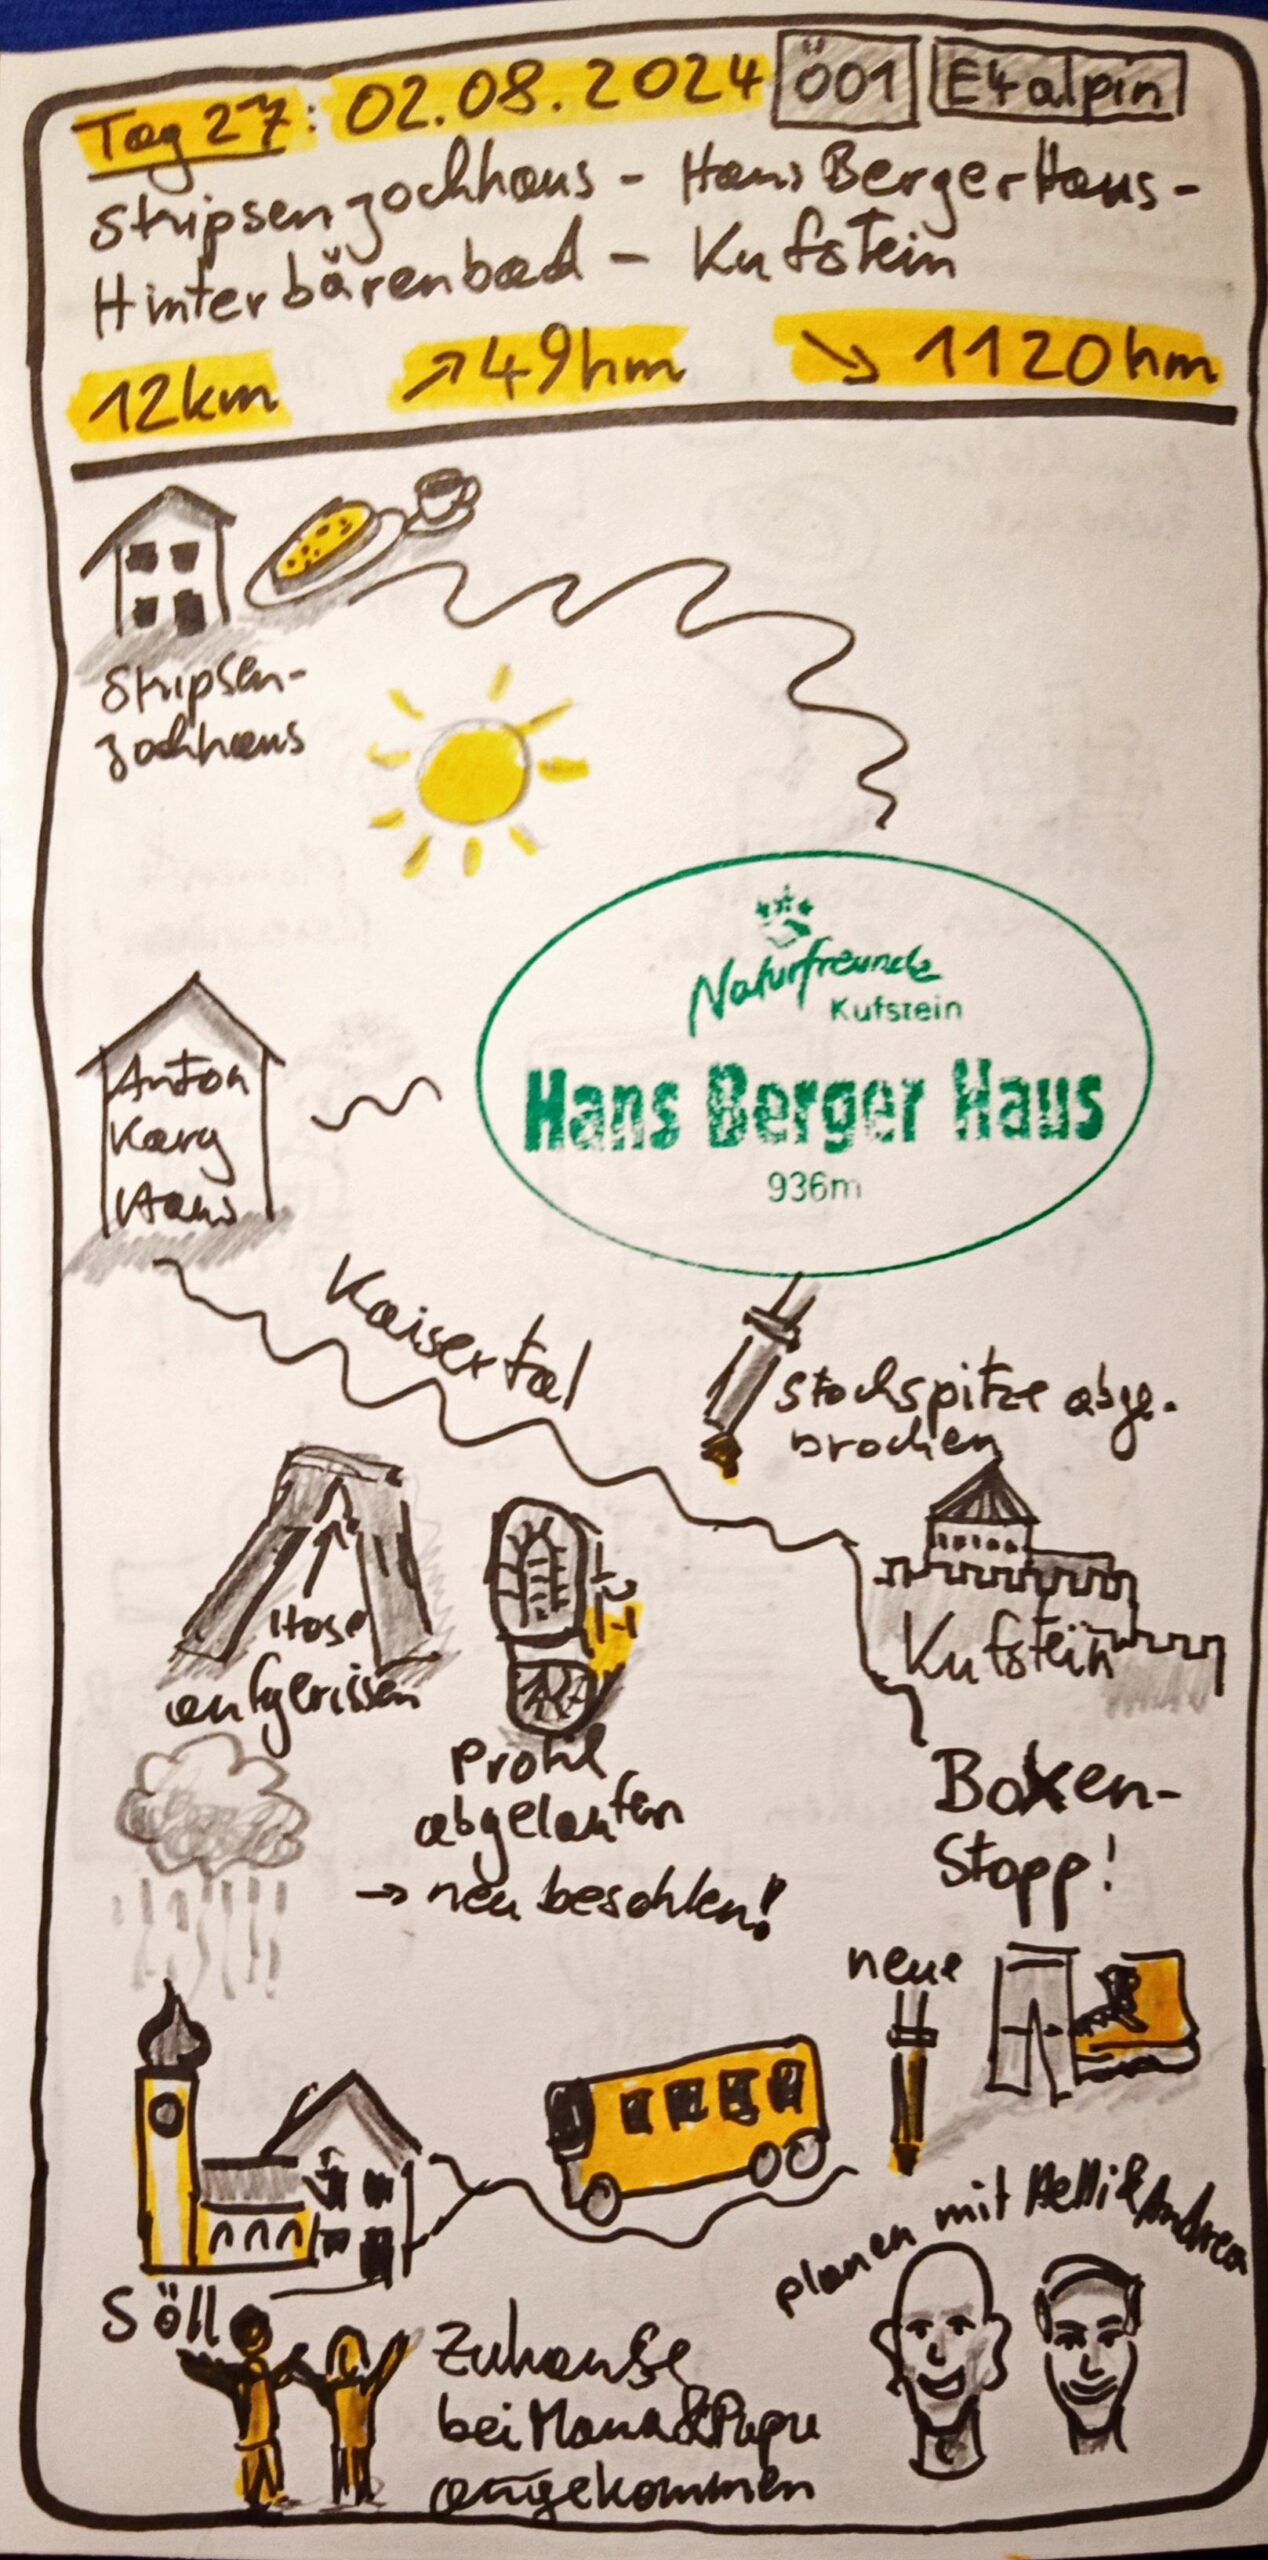 Tag 27: 02.08.2024 Ö01 E4alpin
Stripsenjochhaus - Hans Berger Haus -
Hinterbärenbad - Kufstein
12km ↗49hm ↘ 1120hm
Stripsen-
jochhaus
Naturfreunde
Kufstein
Hans Berger Haus
936m
Anton
Karg
Haus
Kaisertal
Stockspitze abge-
brochen
Hose
aufgerissen
Kufstein
Profil
abgelaufen
→ neu besohlen!
Boxen-
Stopp!
neue
planen mit Helli & Andrea
Söll
Zuhause
bei Mama & Papa
angekommen